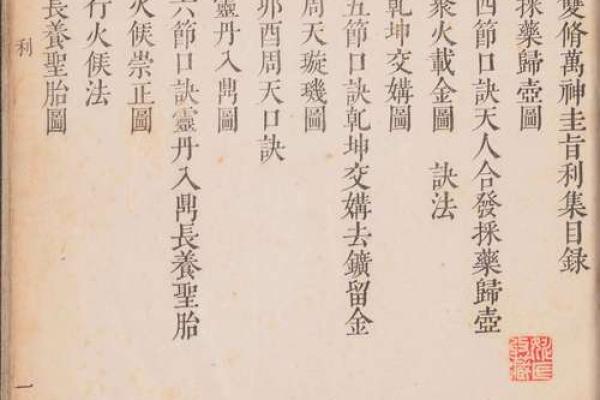 雙脩萬神圭旨利集目録
採藥歸壺圖
四節口訣天人合發採藥歸壺
聚火載金圖　訣法
乾坤交媾圖
五節口訣乾坤交媾去鑛留金
周天璇璣圖
夘酉周天口訣
靈丹入鼎圖
六節口訣靈丹入鼎長養聖胎
火候崇正圖
行火候法
長養聖胎圖
利
一